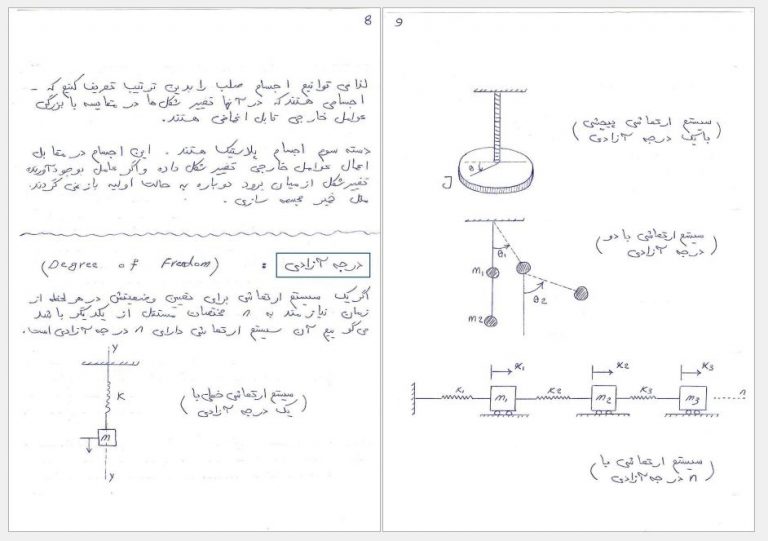 8
لذا می توانیم اجسام صلب را بدین ترتیب تعریف کنیم که -
اجسامی هستند که در آنها تغییر شکل ها در مقایسه با بزرگی
عوامل خارجی قابل اغماض هستند.
دسته سوم اجسام پلاستیک هستند . این اجسام در مقابل
اعمال عوامل خارجی تغییر شکل داده و اگر عامل بوجود آورنده
تغییر شکل از میان برود دوباره به حالت اولیه باز نمی گردند
مثل خمیر مجسمه سازی .
درجه آزادی : (Degree of Freedom)
اگر یک سیستم ارتعاشی برای تعیین وضعیتش در هر لحظه از
زمان نیازمند به n مختصات مستقل از یکدیگر باشد
می گوییم آن سیستم ارتعاشی دارای n درجه آزادی است.
y
K
m
y
(سیستم ارتعاشی خطی با
یک درجه آزادی)
9
(سیستم ارتعاشی پیچشی
با یک درجه آزادی)
θ
J
(سیستم ارتعاشی با دو
درجه آزادی)
θ1
m1
θ2
m2
x1 x2 x3
K1 m1 K2 m2 K3 m3 n
(سیستم ارتعاشی با
n درجه آزادی)